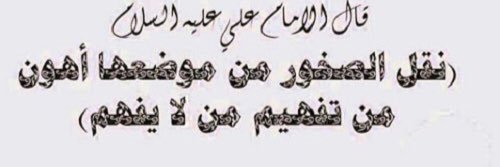 قال الامام علي عليه السلام
(نقل الصخور من موضعها أهون
من تفهيم من لا يفهم)